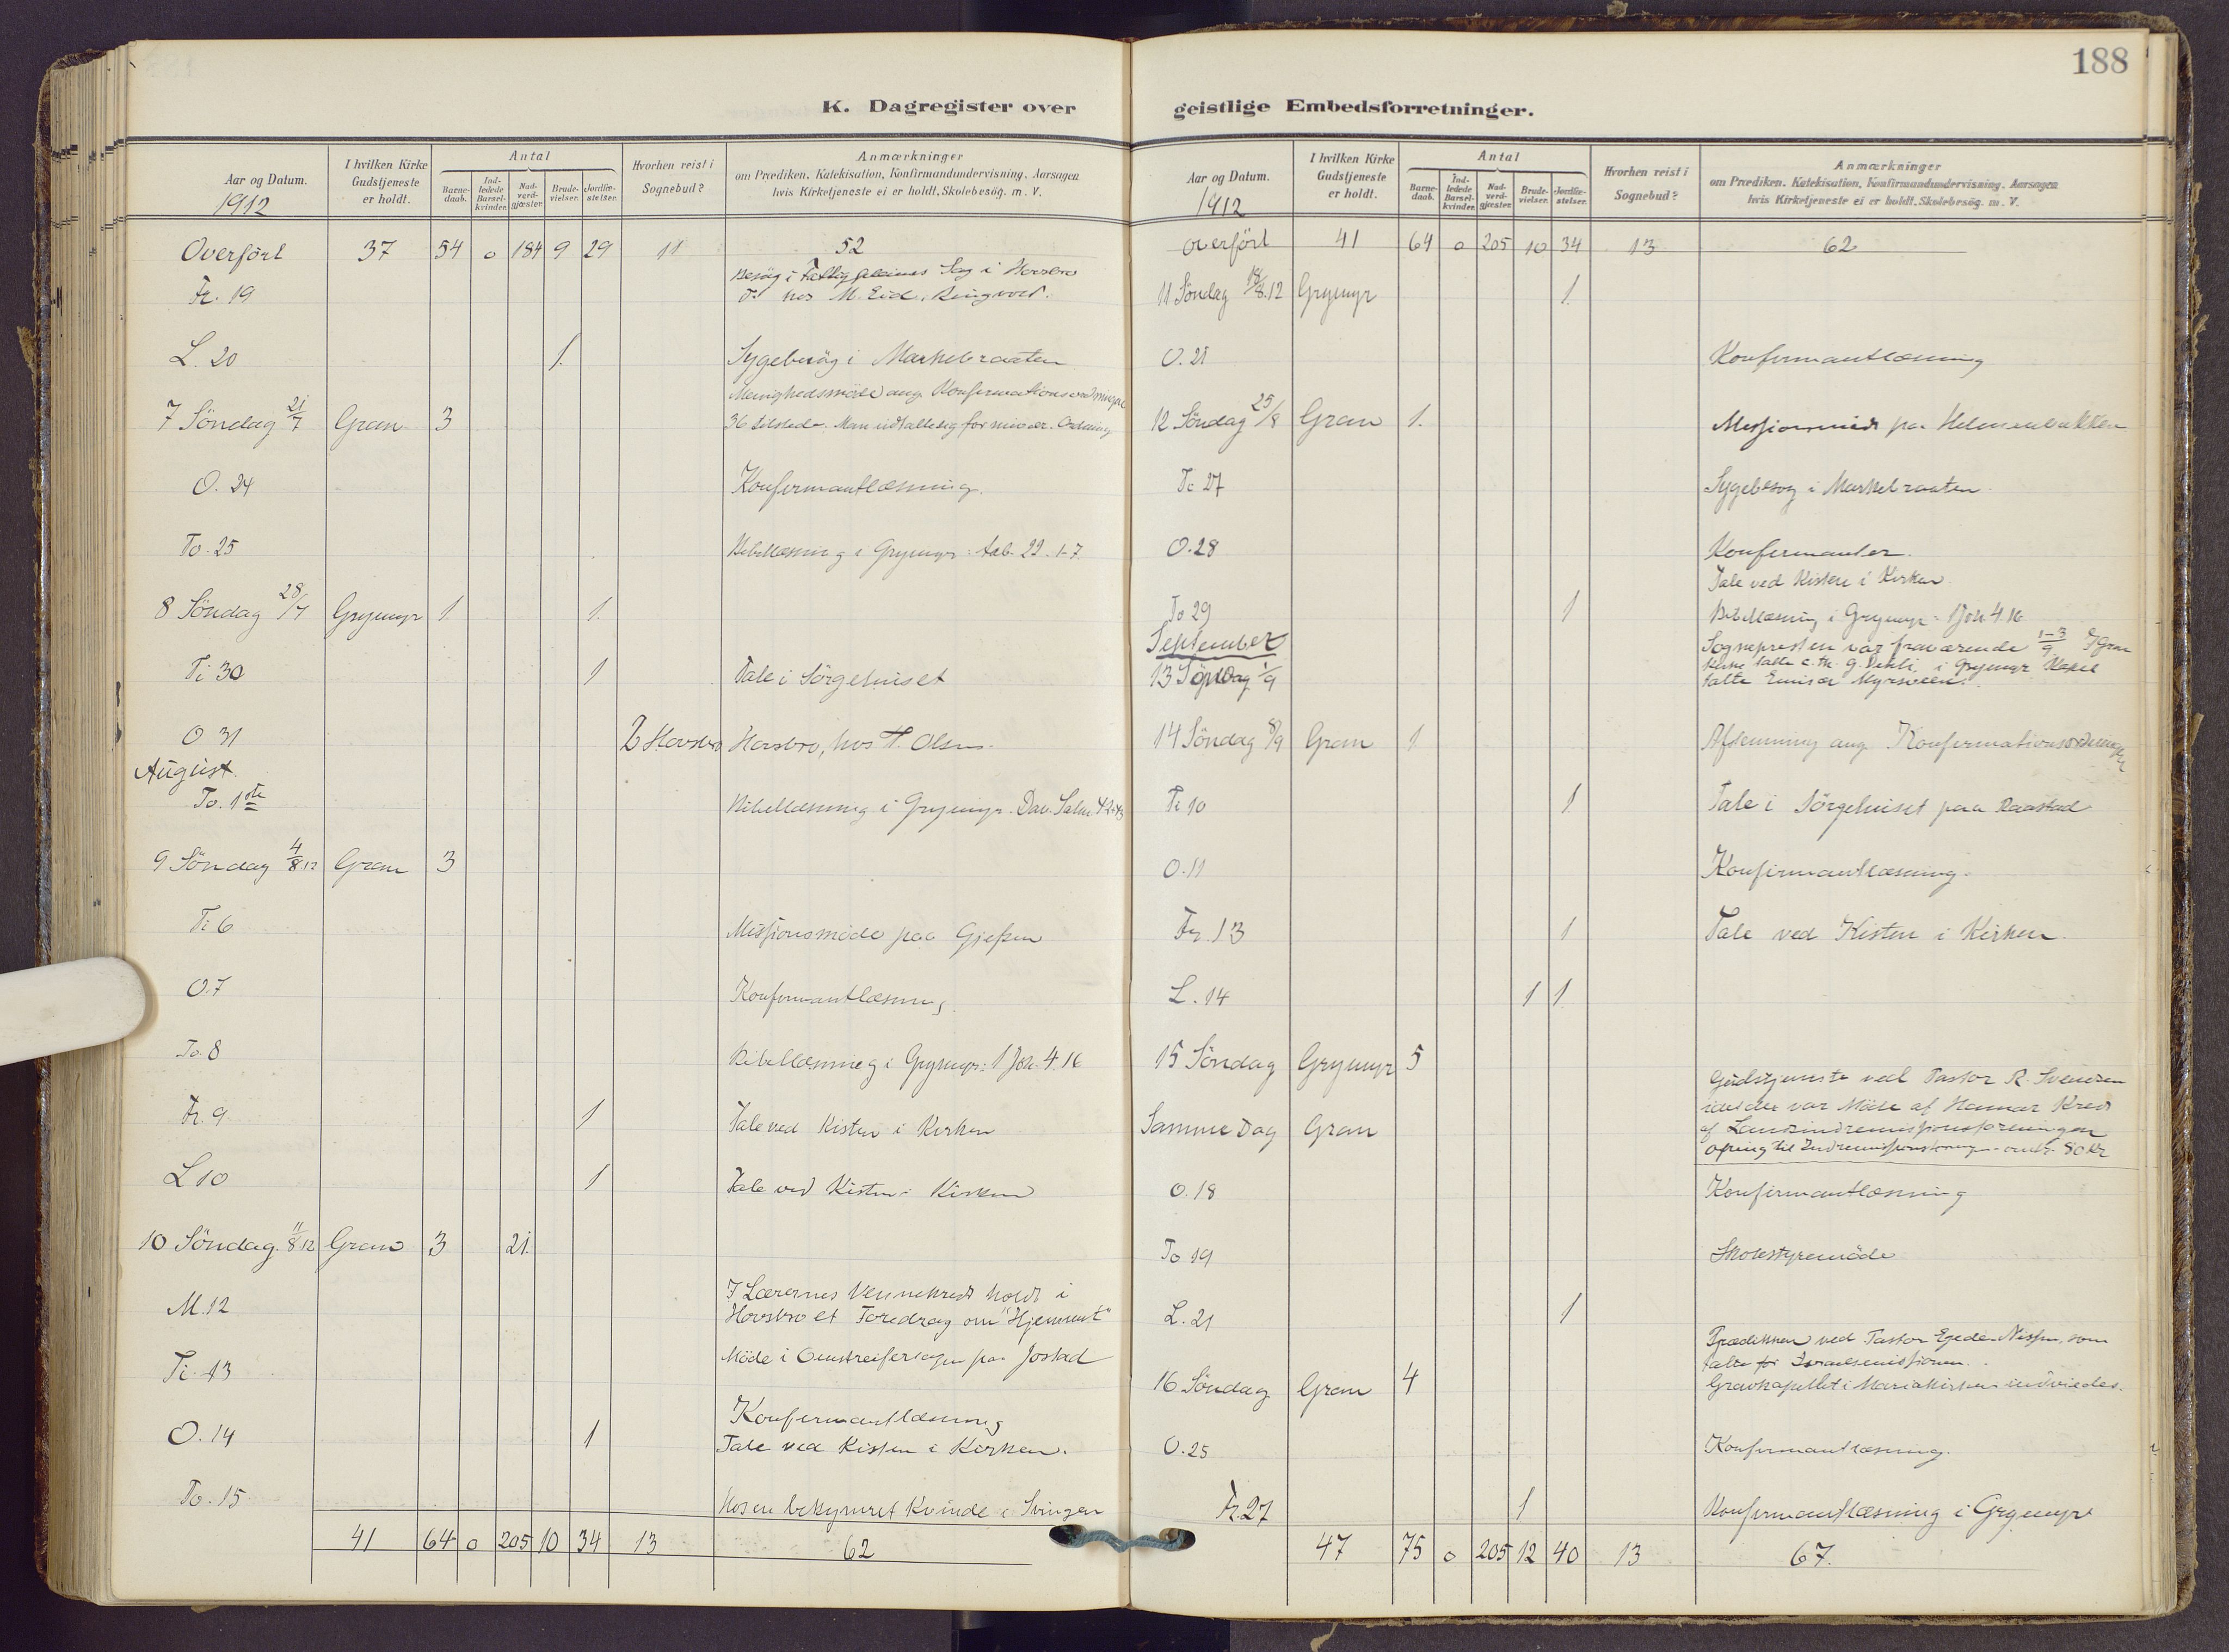 188
K. Dagregister over
geistlige Embedsforretninger.
Aar og Datum.
1912
I hvilken Kirke Gudstjeneste er holdt.
Antal
Barne-daab.
Ind-ledede Barsel-kvinder.
Nad-verd-gjæster.
Brude-vielser.
Jordfæ-stelser.
Hvorhen reist i Sognebud?
Anmærkninger
om Prædiken, Katekisation, Konfirmandundervisning, Aarsagen
hvis Kirketjeneste ei er holdt, Skolebesøg, m. V.
Overført 37 54 0 184 9 29 11 52
Besøg i Sag i Horsbro
Fr. 19 hos M. Eid, Ringvold.
L. 20 1. Sygebesøg i Markebraaten
Menighedsmøde ang. Konfirmationsordningen
7 Søndag 21/7 Gran 3 36 tilstede. Man udtalte sig for nuvær. Ordning
O. 24 Konfirmantlæsning.
To. 25 Bibellæsning i Grymyr: Aab. 22. 1-7
8 Søndag 28/7 Grymyr 1 1.
Ti 30 1 Tale i Sørgehuset
O 31 2 Horsbro Horsbro, hos H. Olsen.
August
To. 1ste Bibellæsning i Grymyr. Dav. Salm. 42-43
9 Søndag 4/8.12 Gran 3
Ti 6 Missionsmøde paa Gjefsen
O.7 Konfirmantlæsning.
To. 8 Bibellæsning i Grymyr: 1 Joh. 4.16
Fr. 9 1 Tale ved Kisten i Kirken
L 10 1 Tale ved Kisten i Kirken
10 Søndag. 11/8.12 Gran 3 21.
I Lærernes Vennekreds holdt i
M.12 Horsbro et Foredrag om "Hjemmet"
Ti. 13 Møde i Omstreifersagen paa Jostad
Konfirmantlæsning
O. 14 1 Tale ved Kisten i Kirken.
To. 15 Hos en bekymret Kvinde i Svingen
41 64 0 205 10 34 13 62
Aar og Datum.
1912
I hvilken Kirke Gudstjeneste er holdt.
Antal
Barne-daab.
Ind-ledede Barsel-kvinder.
Nad-verd-gjæster.
Brude-vielser.
Jordfæ-stelser.
Hvorhen reist i Sognebud?
Anmærkninger
om Prædiken, Katekisation, Konfirmandundervisning, Aarsagen
hvis Kirketjeneste ei er holdt, Skolebesøg, m. V.
Overført 41 64 0 205 10 34 13 62
11 Søndag 18/8.12 Grymyr 1.
O. 21 Konfirmantlæsning
12 Søndag 25/8 Gran 1. Missionsmøde paa Helmenbakken
Ti 27 Sygebesøg i Markebraaten
O. 28 Konfirmanter.
Tale ved Kisten i Kirken
To 29 1 Bibellæsning i Grymyr: 1 Joh 4.16
September Sognepresten var fraværende 1-3/9 I Gran
Kirke talte c. th. g. Dehli i Grymyr Kapel
13 Søndag 1/9 talte Emisær Myrveen.
14 Søndag 8/9 Gran 1 Afstemning ang. Konfirmationsordningen
Ti 10 1. Tale i Sørgehuset paa Raastad
O. 11 Konfirmantlæsning.
Fr. 13 1 Tale ved Kisten i Kirken.
L. 14 1 1
15 Søndag Grymyr 5
Gudstjeneste ved Pastor R. Svendsen
idet der var Møde af Hamar Kreds
Samme Dag Gran af Landsindremissionsforeningen
ofring til Indremissionsforening - omtr. 80 kr
O. 18 Konfirmantlæsning
To 19 Skolestyremøde
L. 21 1
Prædiken ved Pastor Egede-Nissen, som
talte for Israelsmissionen.
16 Søndag Gran 4 Gravkapellet i Mariakirken indviedes.
O. 25 Konfirmantlæsning.
Fr. 27 1 Konfirmantlæsning i Grymyr
47 75 0 205 12 40 13 67.